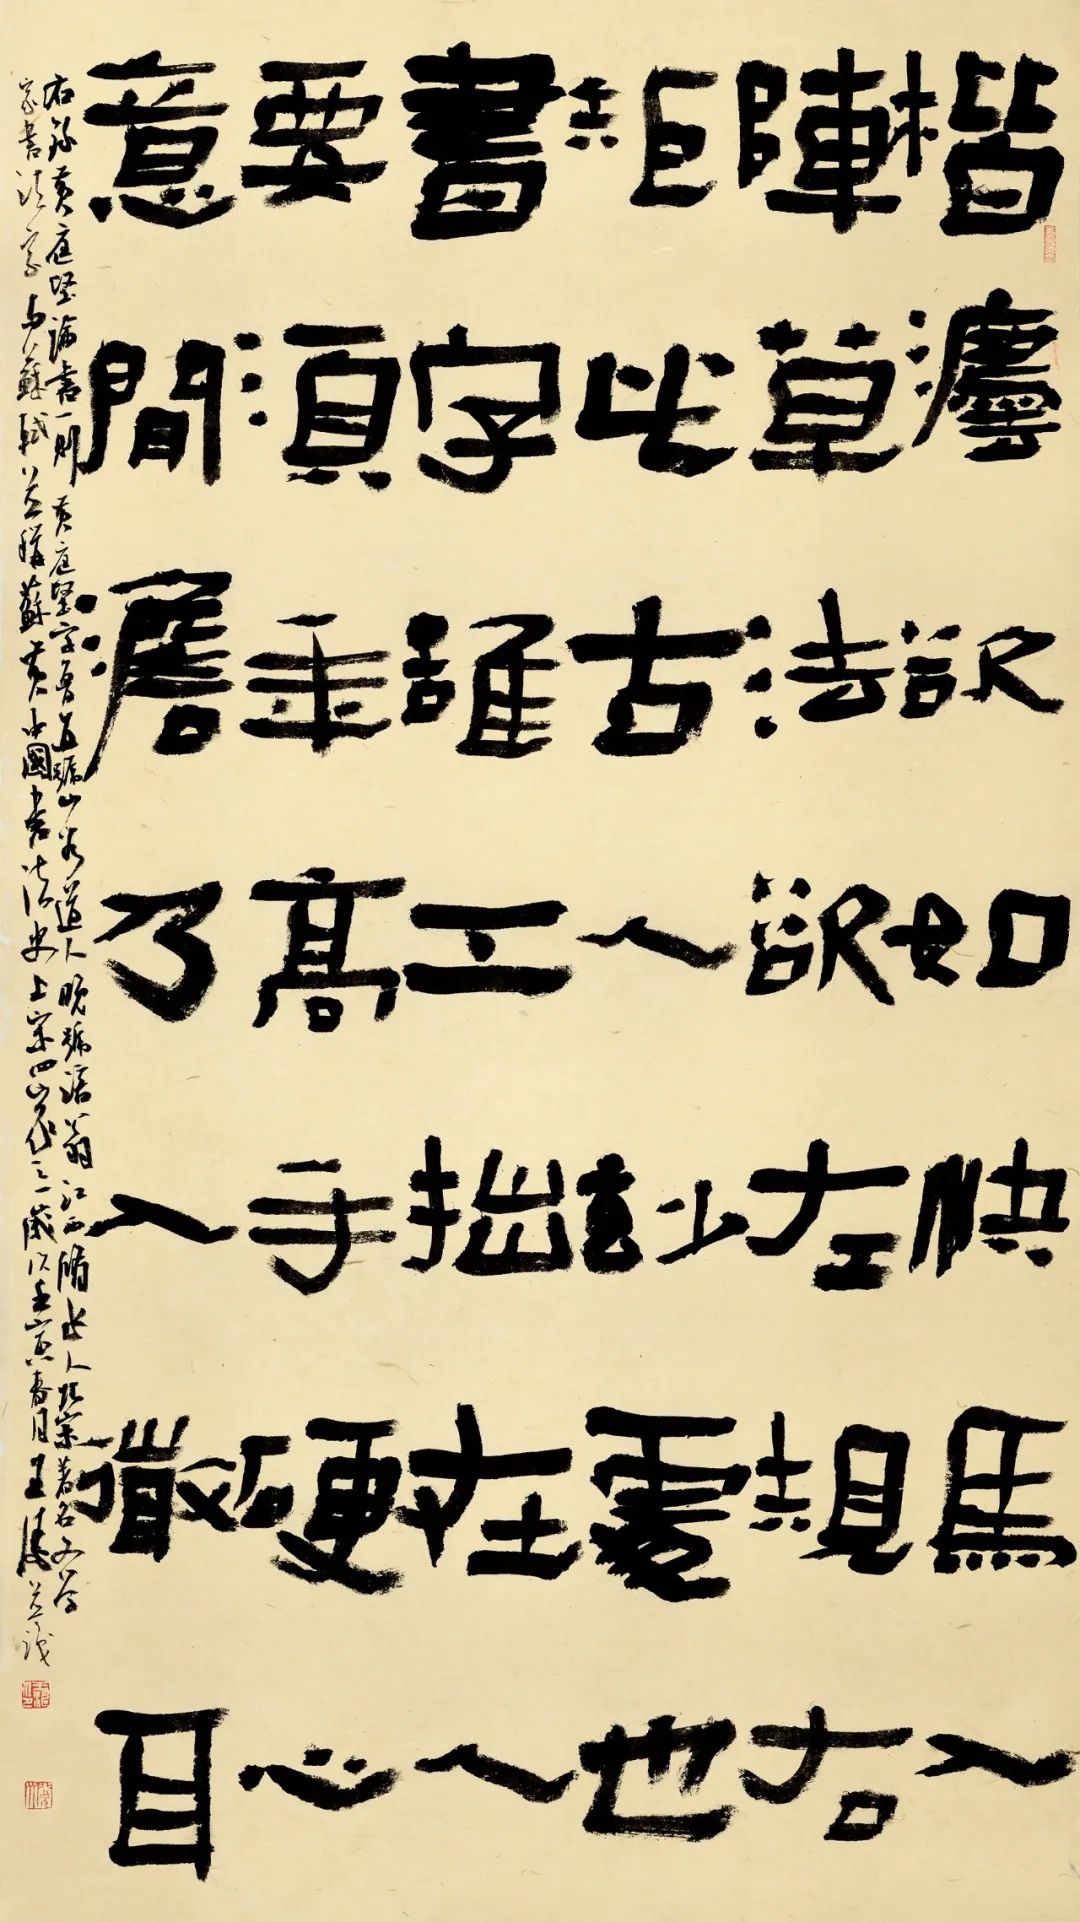 楷灋欲如快馬入
陣草法欲左規右
矩此古人妙處也
書字雖工拙在人
要須年高手硬心
意間澹乃入微耳
右錄黃庭堅論書一則黃庭堅字魯直號山谷道人晚號涪翁江西脩水人北宋著名文學
家書法家与蘇軾並稱蘇黃中國書法史上宋四家之一歲次壬寅春月王濤並識